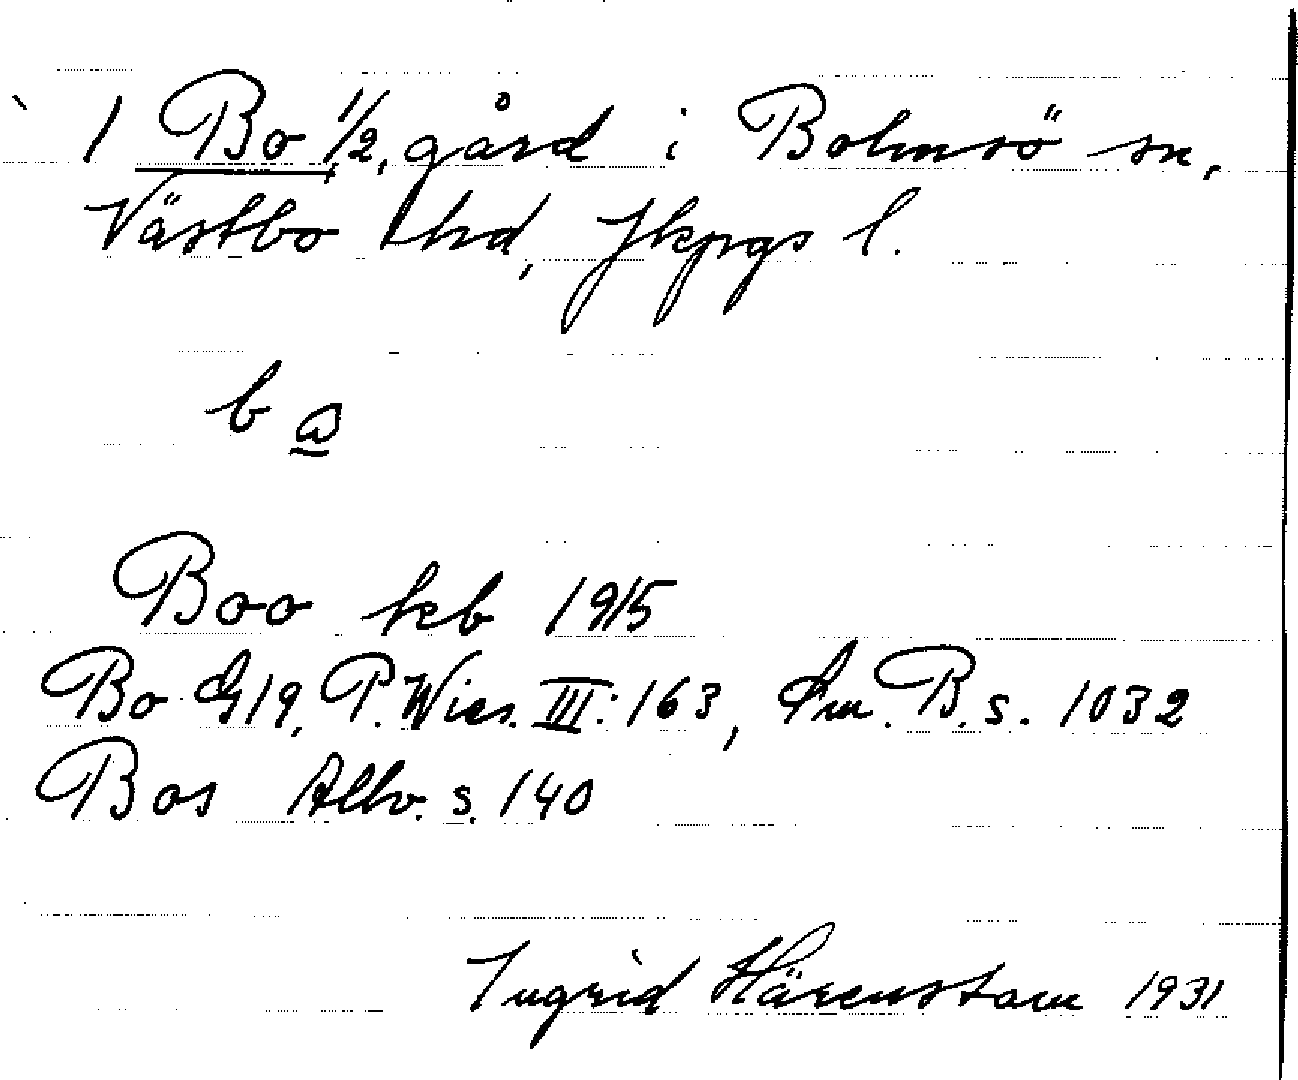 1 Bo 1/2, gård i Bolmsö sn,
Västbo hd, Jkpgs l.
b a
Boo kb 1915
Bo G19, P. Wies. III: 163, Sm. B. s. 1032
Bos Allv. s. 140
Ingrid Härenstam 1931